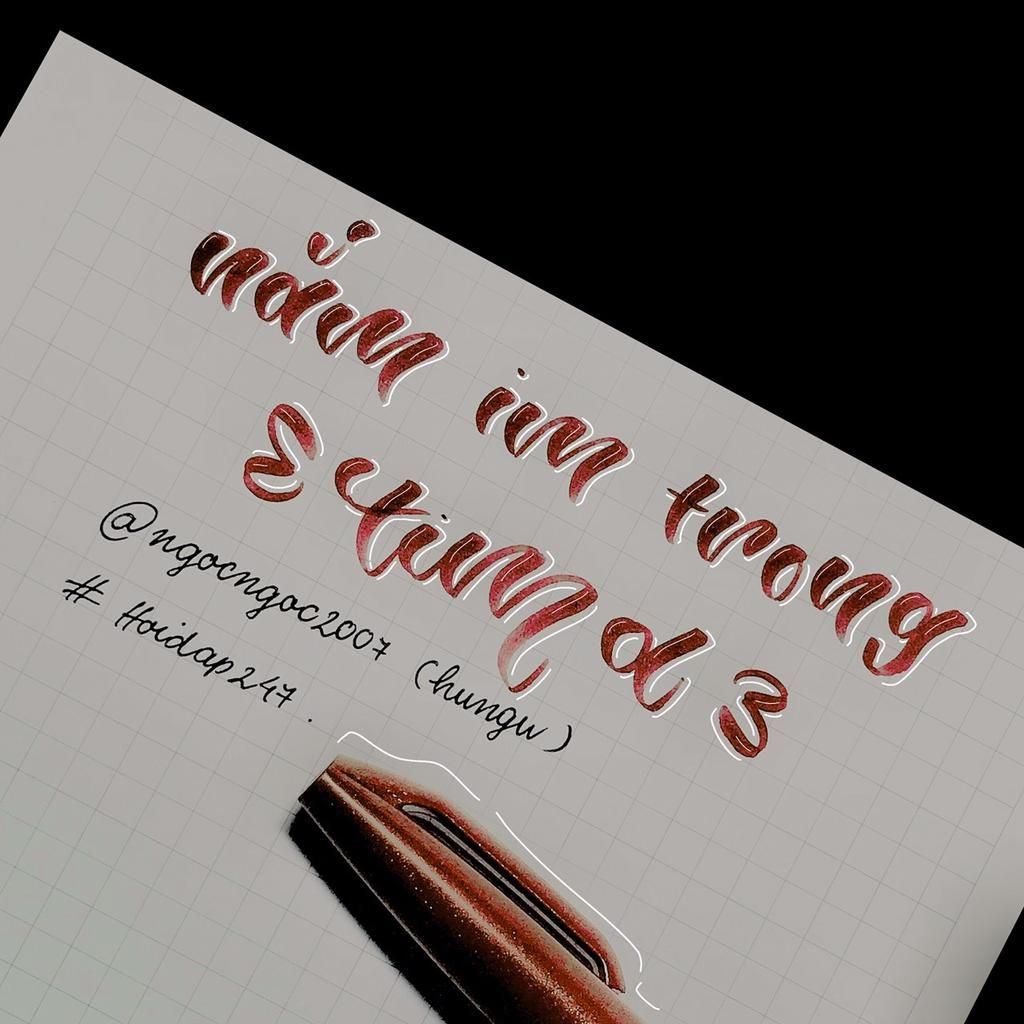 nằm im trong
ε tim d 3
@ngocngoc2007 (hungu)
# Hoidap247.